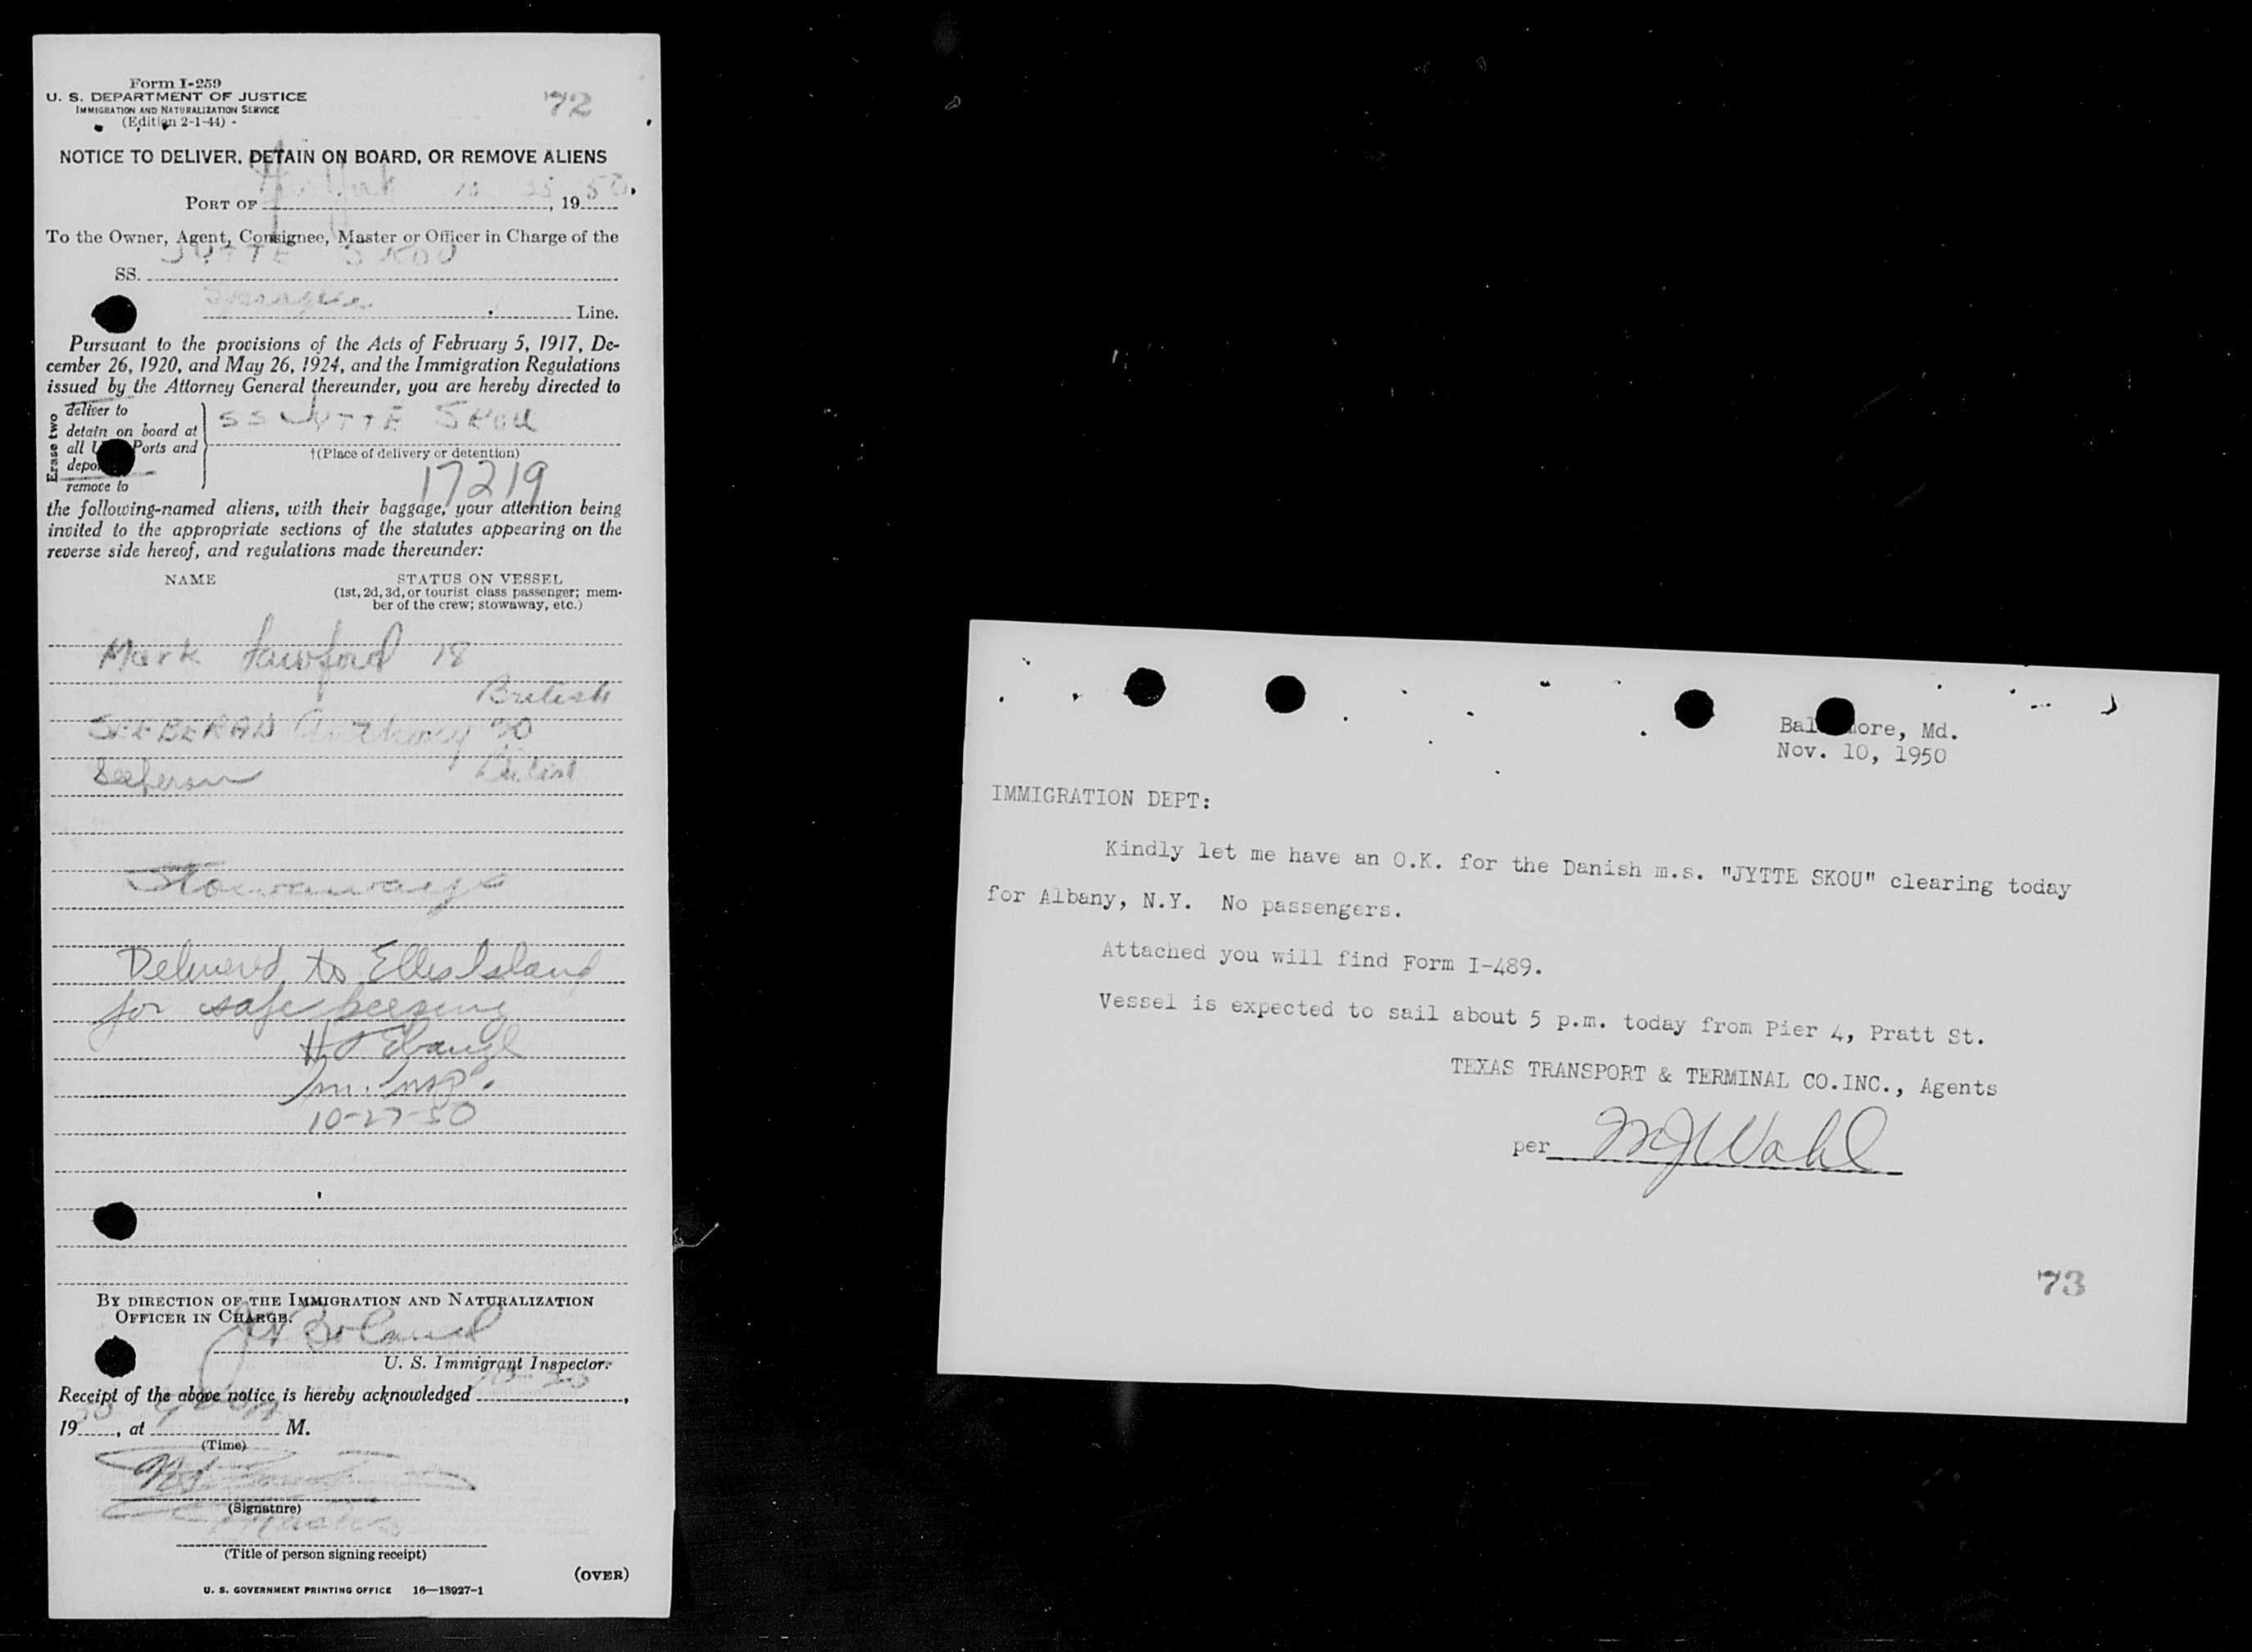 Form I-259
U. S. DEPARTMENT OF JUSTICE
IMMIGRATION AND NATURALIZATION SERVICE
(Edition 2-1-44)
72
NOTICE TO DELIVER, DETAIN ON BOARD, OR REMOVE ALIENS
PORT OF 10 , 1950
To the Owner, Agent, Consignee, Master or Officer in Charge of the
SS. JYTTE SKOU
Line.
Pursuant to the provisions of the Acts of February 5, 1917, De-
cember 26, 1920, and May 26, 1924, and the Immigration Regulations
issued by the Attorney General thereunder, you are hereby directed to
Erase two
deliver to
detain on board at
all U Ports and
depo
remove to
SS JYTTE SKOU
†(Place of delivery or detention)
17219
the following-named aliens, with their baggage, your attention being
invited to the appropriate sections of the statutes appearing on the
reverse side hereof, and regulations made thereunder:
NAME
STATUS ON VESSEL
(1st, 2d, 3d, or tourist class passenger; mem-
ber of the crew; stowaway, etc.)
Mark 18
British
Anthony
British
Stowaways
Delivered to Ellis Island
for safe keeping
Im. Insp.
10-27-50
BY DIRECTION OF THE IMMIGRATION AND NATURALIZATION
OFFICER IN CHARGE.
Boland
U. S. Immigrant Inspector.
Receipt of the above notice is hereby acknowledged ,
1950, at M.
(Time)
(Signature)
Master
(Title of person signing receipt)
(OVER)
U. S. GOVERNMENT PRINTING OFFICE 16—18927-1
Bal ore, Md.
Nov. 10, 1950
IMMIGRATION DEPT:
Kindly let me have an O.K. for the Danish m.s. "JYTTE SKOU" clearing today
for Albany, N.Y. No passengers.
Attached you will find Form I-489.
Vessel is expected to sail about 5 p.m. today from Pier 4, Pratt St.
TEXAS TRANSPORT & TERMINAL CO.INC., Agents
per MJWahl
73